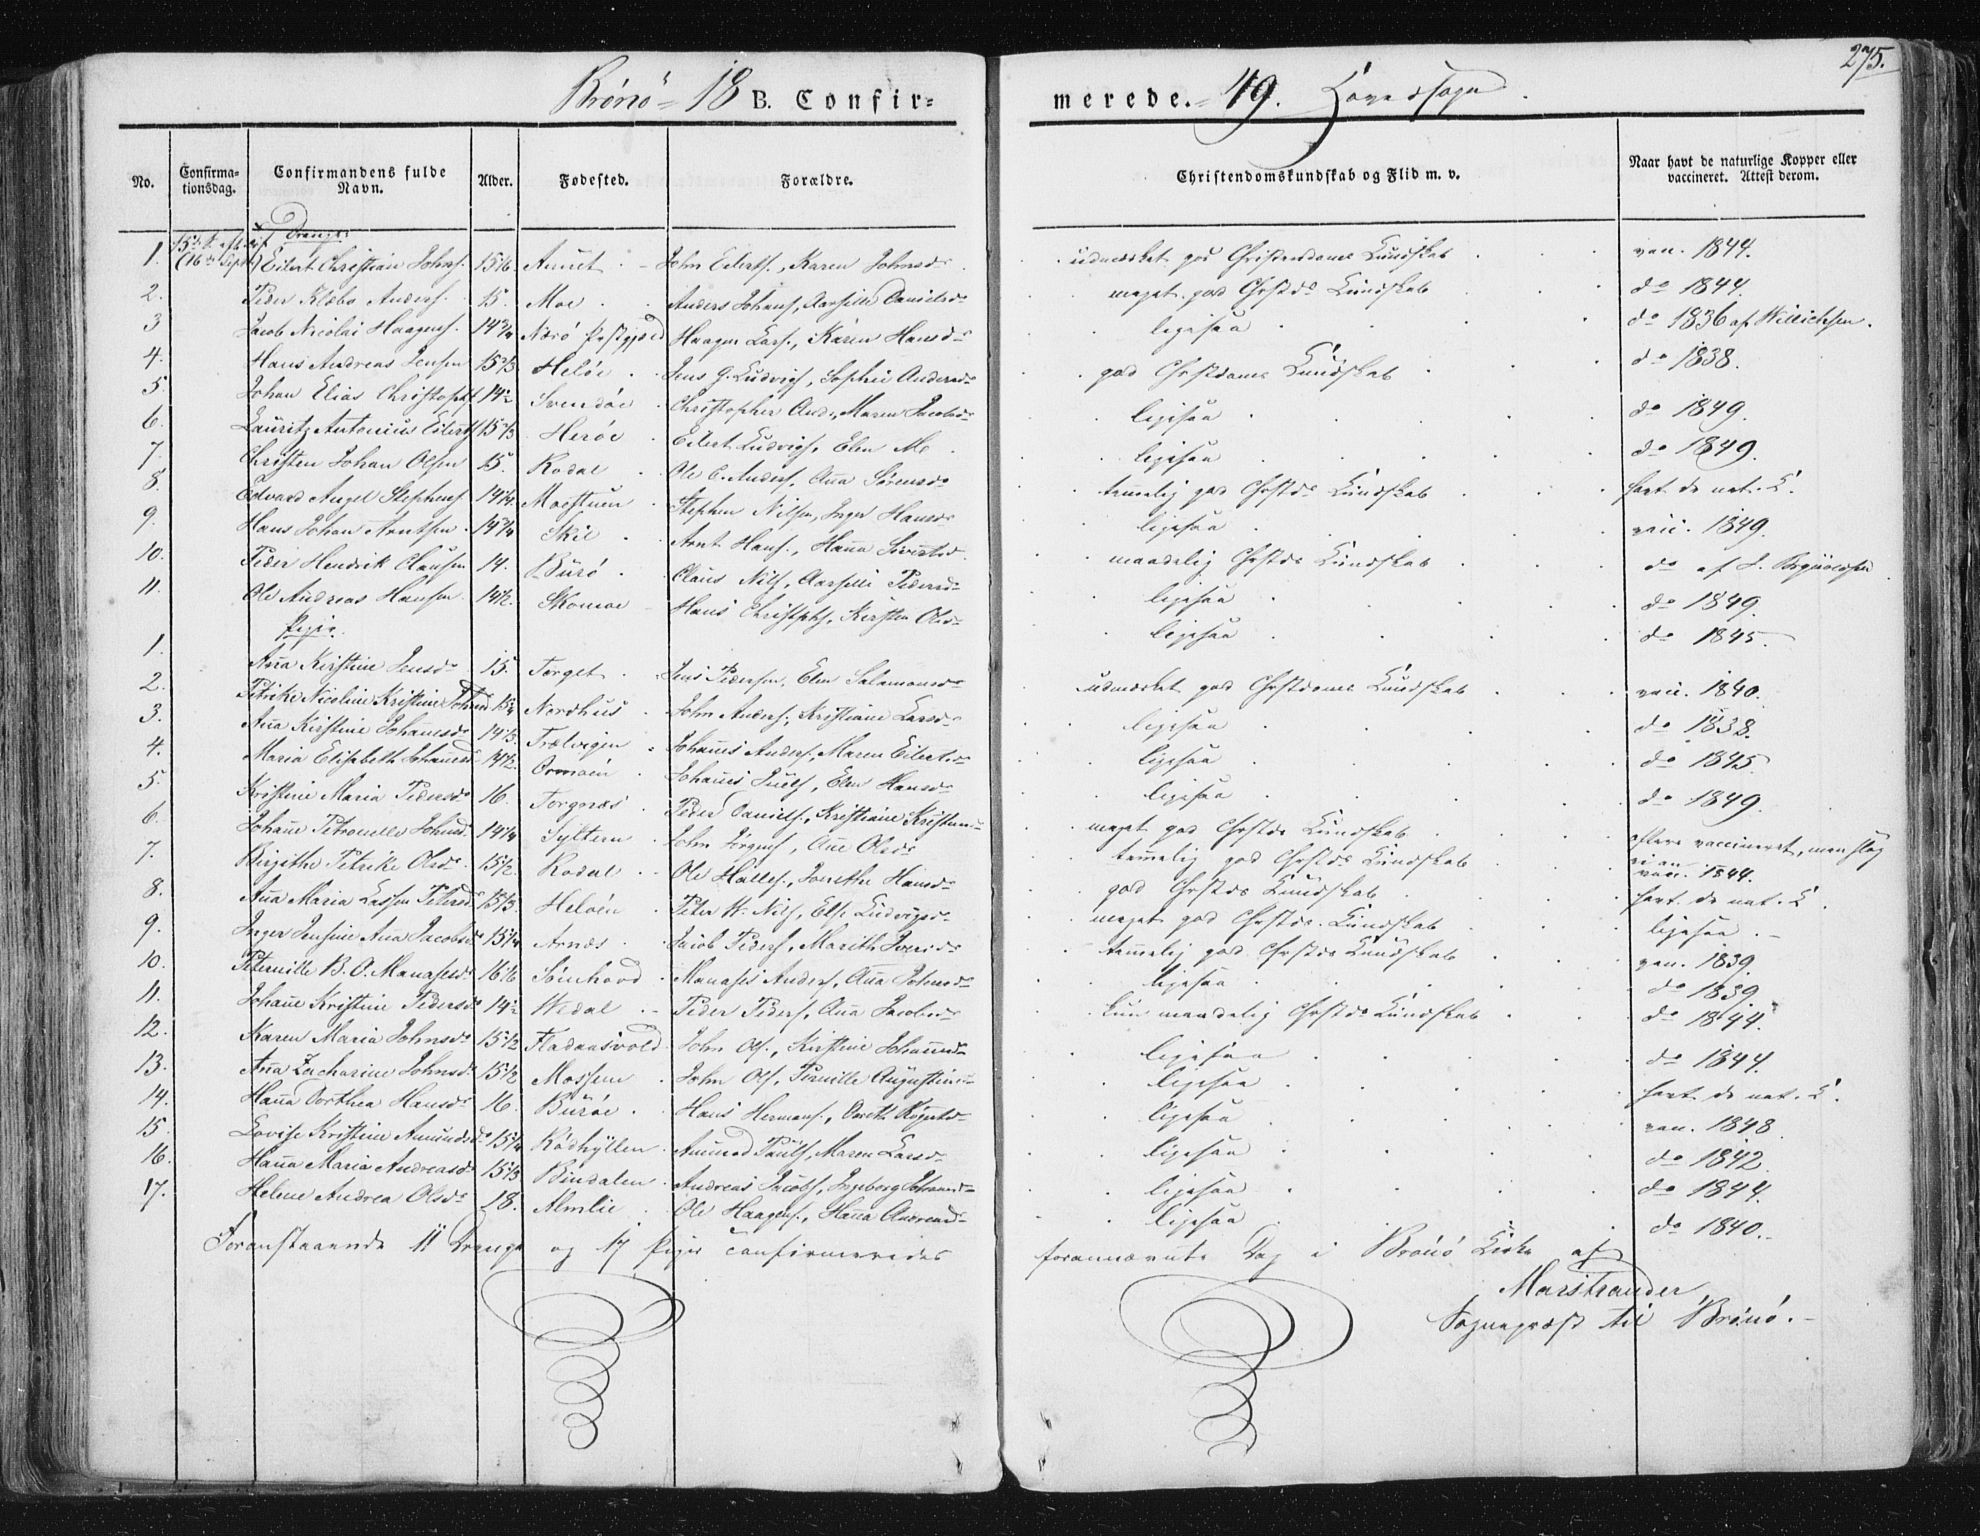 275.
Brönö 18 B. Confirmerede. 49. Hovedsogn.
No. Confirmationsdag. Confirmandens fulde Navn. Alder. Fødested. Forældre. Christendomskundskab og Flid m. v. Naar havt de naturlige Kopper eller vaccineret. Attest derom.
Drenge
1. (16de Sept.) Eilert Christian Johns. 15 1/6 John Eilerts., Karen Johnsdr udmærket god Christendoms Kundskab vac. 1844.
2. Peder Klæbo Anders. 15. Moe Anders Johans, Danielsdr meget god Chrstds Kundskab do 1844.
3 Jacob Nicolai Haagens. 14 3/4 Nærö Præstgjæld Haagen Lars., Karen Hansdr ligesaa do 1836 af Willichsen.
4. Hans Andreas Jensen Helöe Jens G. Ludvigs, Sophie Andersdr god Chrstdoms Kundskab do 1838.
5. Johan Elias Christophs 14 1/2 Svendöe Christopher And., Maren Jacobsdr ligesaa do 1849.
6. Lauritz Antonius Eilerts Heröe Eilert Ludvigs, Elen M. ligesaa do 1849.
7. Christen Johan Olsen 15. Rodal Ole C. Anders, Aña Sörensdr temelig god Chrstds Kundskab havt de nat. K.
8. Edvard Angel Stephens. 14 3/4 Moestuen Stephen Nilsen, Inger Hansdr ligesaa vacc. 1849.
9. Hans Johan Arntsen 14 3/4 Skil Arnt Hans., Haña Sivertsd. maadelig Chrstds Kundskab
10. Peder Hendrik Clausen 14. Burö Claus Nils, Pedersdr ligesaa do 1849.
11. Ole Andreas Hansen 14 1/2. Skomoe Hans Christophs, Kirsten Olsdr ligesaa do 1845.
Piger.
1. Aña Kirstine Jensdr 15. Torget Jens Pedersen, Elen Salamonsdr udmærket god Chrstdoms Kundskab vacc. 1840.
2. Petrike Nicoline Kristine Johnsd 15 1/4 Nordhus John Anders., Kristiane Larsdr ligesaa do 1838.
3. Aña Kirstine Johañesdr 14 1/3. Trælvigen Johañes Anders, Maren Eilertsdr ligesaa do 1845.
4. Maria Elisabeth Johañesd 14 1/2. Ormöen Johañes Juuls, Elen Hansdr ligesaa do 1849.
5. Kristine Maria Pedersdr 16. Torgnæs Peder Daniels., Kristiane Kristensdr meget god Chrstds Kundskab oftere vaccineret, men slog ei an
6. Johañe Petronelle Johnsd. 14 3/4 Syltern John Jörgens, Ane Olsdr temelig god Chrstds Kundskab vacc. 1844.
7. Birgithe Petrikke Olsdr 15 1/2. Rodal Ole Halles., Hansdr god Chrstds Kundskab havt de nat. K.
8. Aña Maria Lassen Petersd. 15 1/3. Helöen Peter W. Nils, Else Ludvigsdr meget god Chrstds. Kundskab ligesaa
9. Inger Jensine Aña Jacobsdr 15 1/4 Arnæs Jacob Peders, Marith Iversdr temelig god Chrstds Kundskab vac. 1839.
10. Peternille B. O. Manasesd. 16 1/6 Sömhovd Manases Anders, Aña Johnsdr ligesaa do 1839
11. Johañe Kristine Pedersdr 14 1/2 Wedal Peder Peders, Aña Jacobsdr kun maadelig Chrstds Kundskab do 1844.
12. Karen Maria Johnsdr 15 1/2 John Ols., Kirstine Johañesdr ligesaa do 1844.
13. Aña Zacharine Johnsdr 15 1/2 Mossem John Ols, Pernille Augustinusdr ligesaa havt de nat. K.
14. Haña Dorthea Hansdr 16. Buröe Hans Hermans., Dorth. ligesaa vac. 1848
15. Lovise Kristine Amundsdr 15 1/4 Rödhyllen Amund Pauls, Maren Larsdr ligesaa do 1842.
16. Haña Maria Andreasdr 15 1/3 Bindalen Andreas Jacobs, Ingeborg Johañesdr ligesaa do 1844.
17. Helene Andrea Olsdr 18. Almlie Ole Haagens., Haña Andreasdr ligesaa do 1840.
Foranstaaende 11 Drenge og 17 Piger confirmeredes forannævnte Dag i Brönö Kirke af
Marstrander
Sognepræst til Brönö.